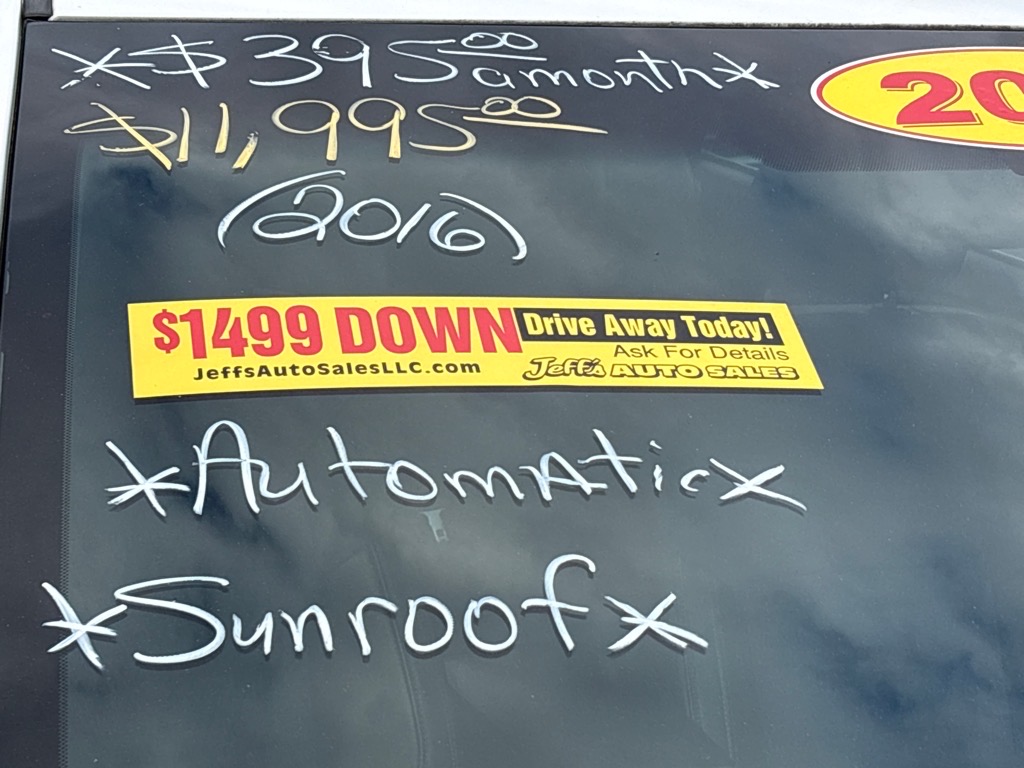 *$395.00 a month*
20
$11,995.00
(2016)
$1499 DOWN Drive Away Today!
Ask For Details
JeffsAutoSalesLLC.com Jeff's AUTO SALES
*Automatic*
*Sunroof*